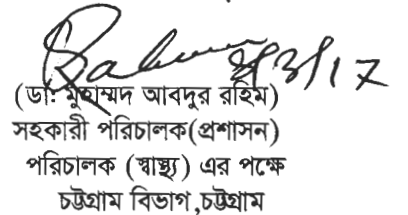 (ডা: মুহাম্মদ আবদুর রহিম)
সহকারী পরিচালক(প্রশাসন)
পরিচালক (স্বাস্থ্য) এর পক্ষে
চট্টগ্রাম বিভাগ,চট্টগ্রাম